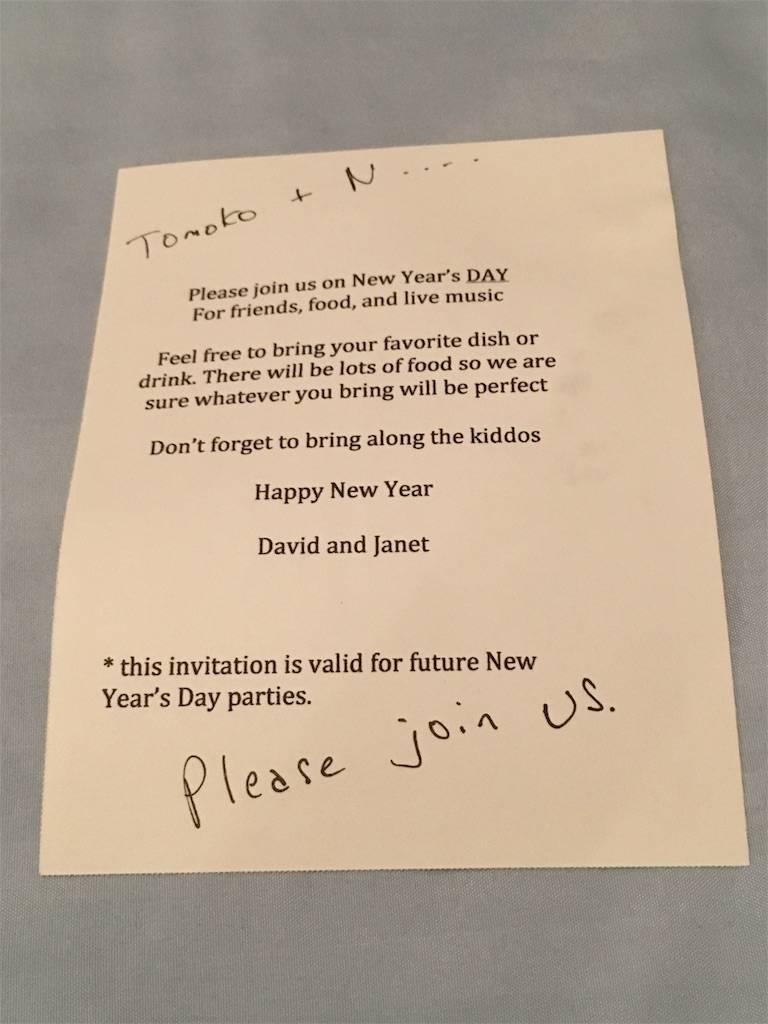 Tomoko + N ....
Please join us on New Year's DAY
For friends, food, and live music
Feel free to bring your favorite dish or
drink. There will be lots of food so we are
sure whatever you bring will be perfect
Don't forget to bring along the kiddos
Happy New Year
David and Janet
* this invitation is valid for future New
Year's Day parties.
Please join us.